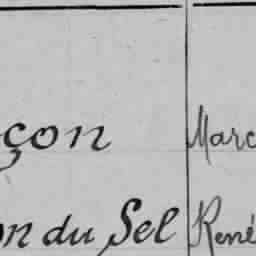 çon Marc
on du Sel René